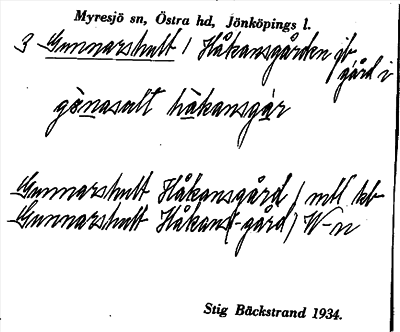 Myresjö sn, Östra hd, Jönköpings l.
3 Gunnarshult / Håkansgården jb
gård i
gònasalt håkansgår
Gunnarshult Håkansgård / mtl kb
Gunnarshult Håkans(-gård) W-n
Stig Bäckstrand 1934.